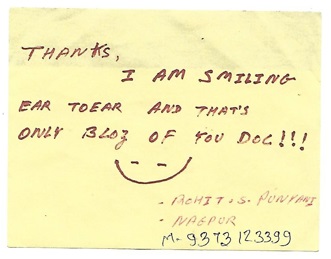 THANKS,
I AM SMILING
EAR TOEAR AND THAT'S
ONLY BLOZ OF YOU DOC!!!
- MOHIT.S. PUNYANI
- NAGPUR
M- 9373123399